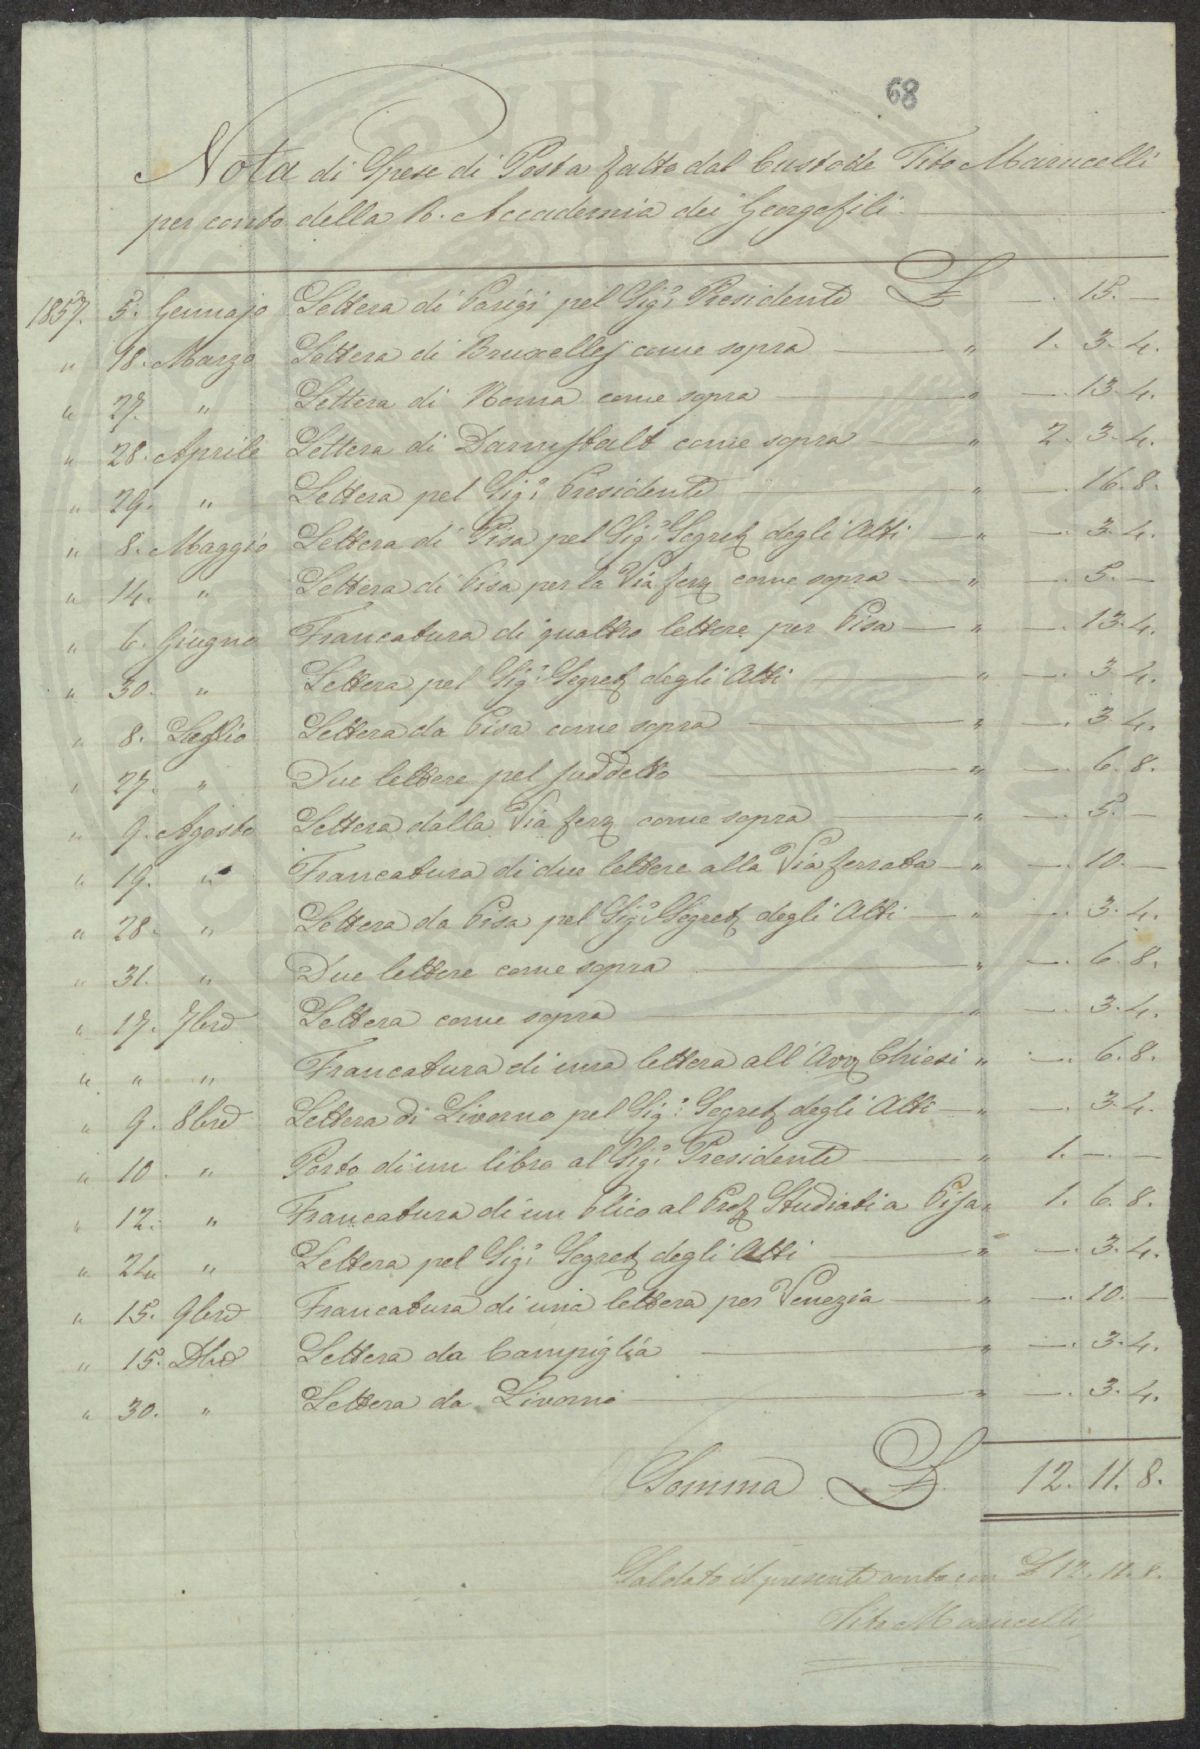 68
Nota di Spese di Posta fatte dal Custode Tito Marucelli
per conto della R. Accademia dei Georgofili
1857. 5. Gennajo Lettera di Parigi pel Sig.r Presidente £ —. 15. —
" 18. Marzo Lettera di Bruxelles come sopra — " 1. 3. 4.
" 27. " Lettera di Roma come sopra — " —. 13. 4.
" 28. Aprile Lettera di Darmstalt come sopra — " 2. 3. 4.
" 29. " Lettera pel Sig.r Presidente — " —. 16. 8.
" 8. Maggio Lettera di Pisa pel Sig.r Segret. degli Atti — " —. 3. 4.
" 14. " Lettera di Pisa per la Via ferr. come sopra — " —. 5. —
" 6. Giugno Francatura di quattro lettere per Pisa — " —. 13. 4.
" 30. " Lettera pel Sig.r Segret. degli Atti — " —. 3. 4.
" 8. Luglio Lettera da Pisa come sopra — " —. 3. 4.
" 27. " Due lettere pel suddetto — " —. 6. 8.
" 9. Agosto Lettera dalla Via ferr. come sopra — " —. 5. —
" 19. " Francatura di due lettere alla Via ferrata — " —. 10. —
" 28. " Lettera da Pisa pel Sig.r Segret. degli Atti — " —. 3. 4.
" 31. " Due lettere come sopra — " —. 6. 8.
" 17. 7bre Lettera come sopra — " —. 3. 4.
" " " Francatura di una lettera all'Avv. Chiesi " —. 6. 8.
" 9. 8bre Lettera di Livorno pel Sig.r Segret. degli Atti — " —. 3. 4.
" 10 " Porto di un libro al Sig.r Presidente — " 1. —. —
" 12. " Francatura di un Plico al Prof. Studiati a Pisa " 1. 6. 8.
" 24 " Lettera pel Sig.r Segret. degli Atti — " —. 3. 4.
" 15. 9bre Francatura di una lettera per Venezia — " —. 10. —
" 15. Xbre Lettera da Campiglia — " —. 3. 4.
" 30. " Lettera da Livorno — " —. 3. 4.
Somma £ 12. 11. 8.
Saldato il presente conto con £ 12. 11. 8.
Tito Marucelli